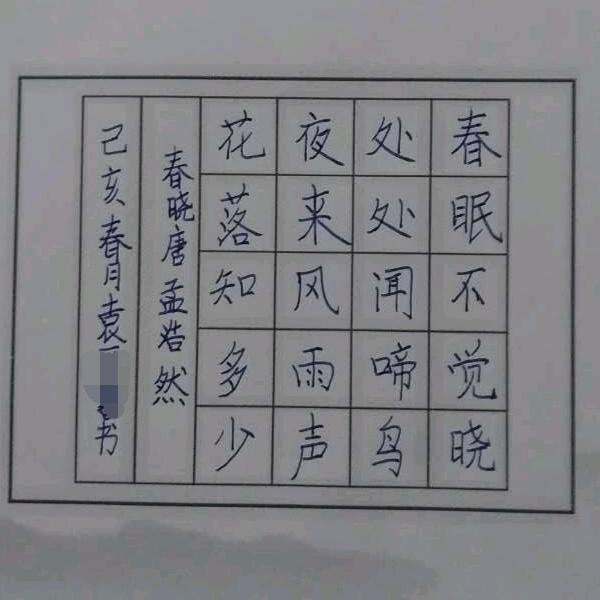 春眠不觉晓
处处闻啼鸟
夜来风雨声
花落知多少
春晓唐孟浩然
己亥春月袁书